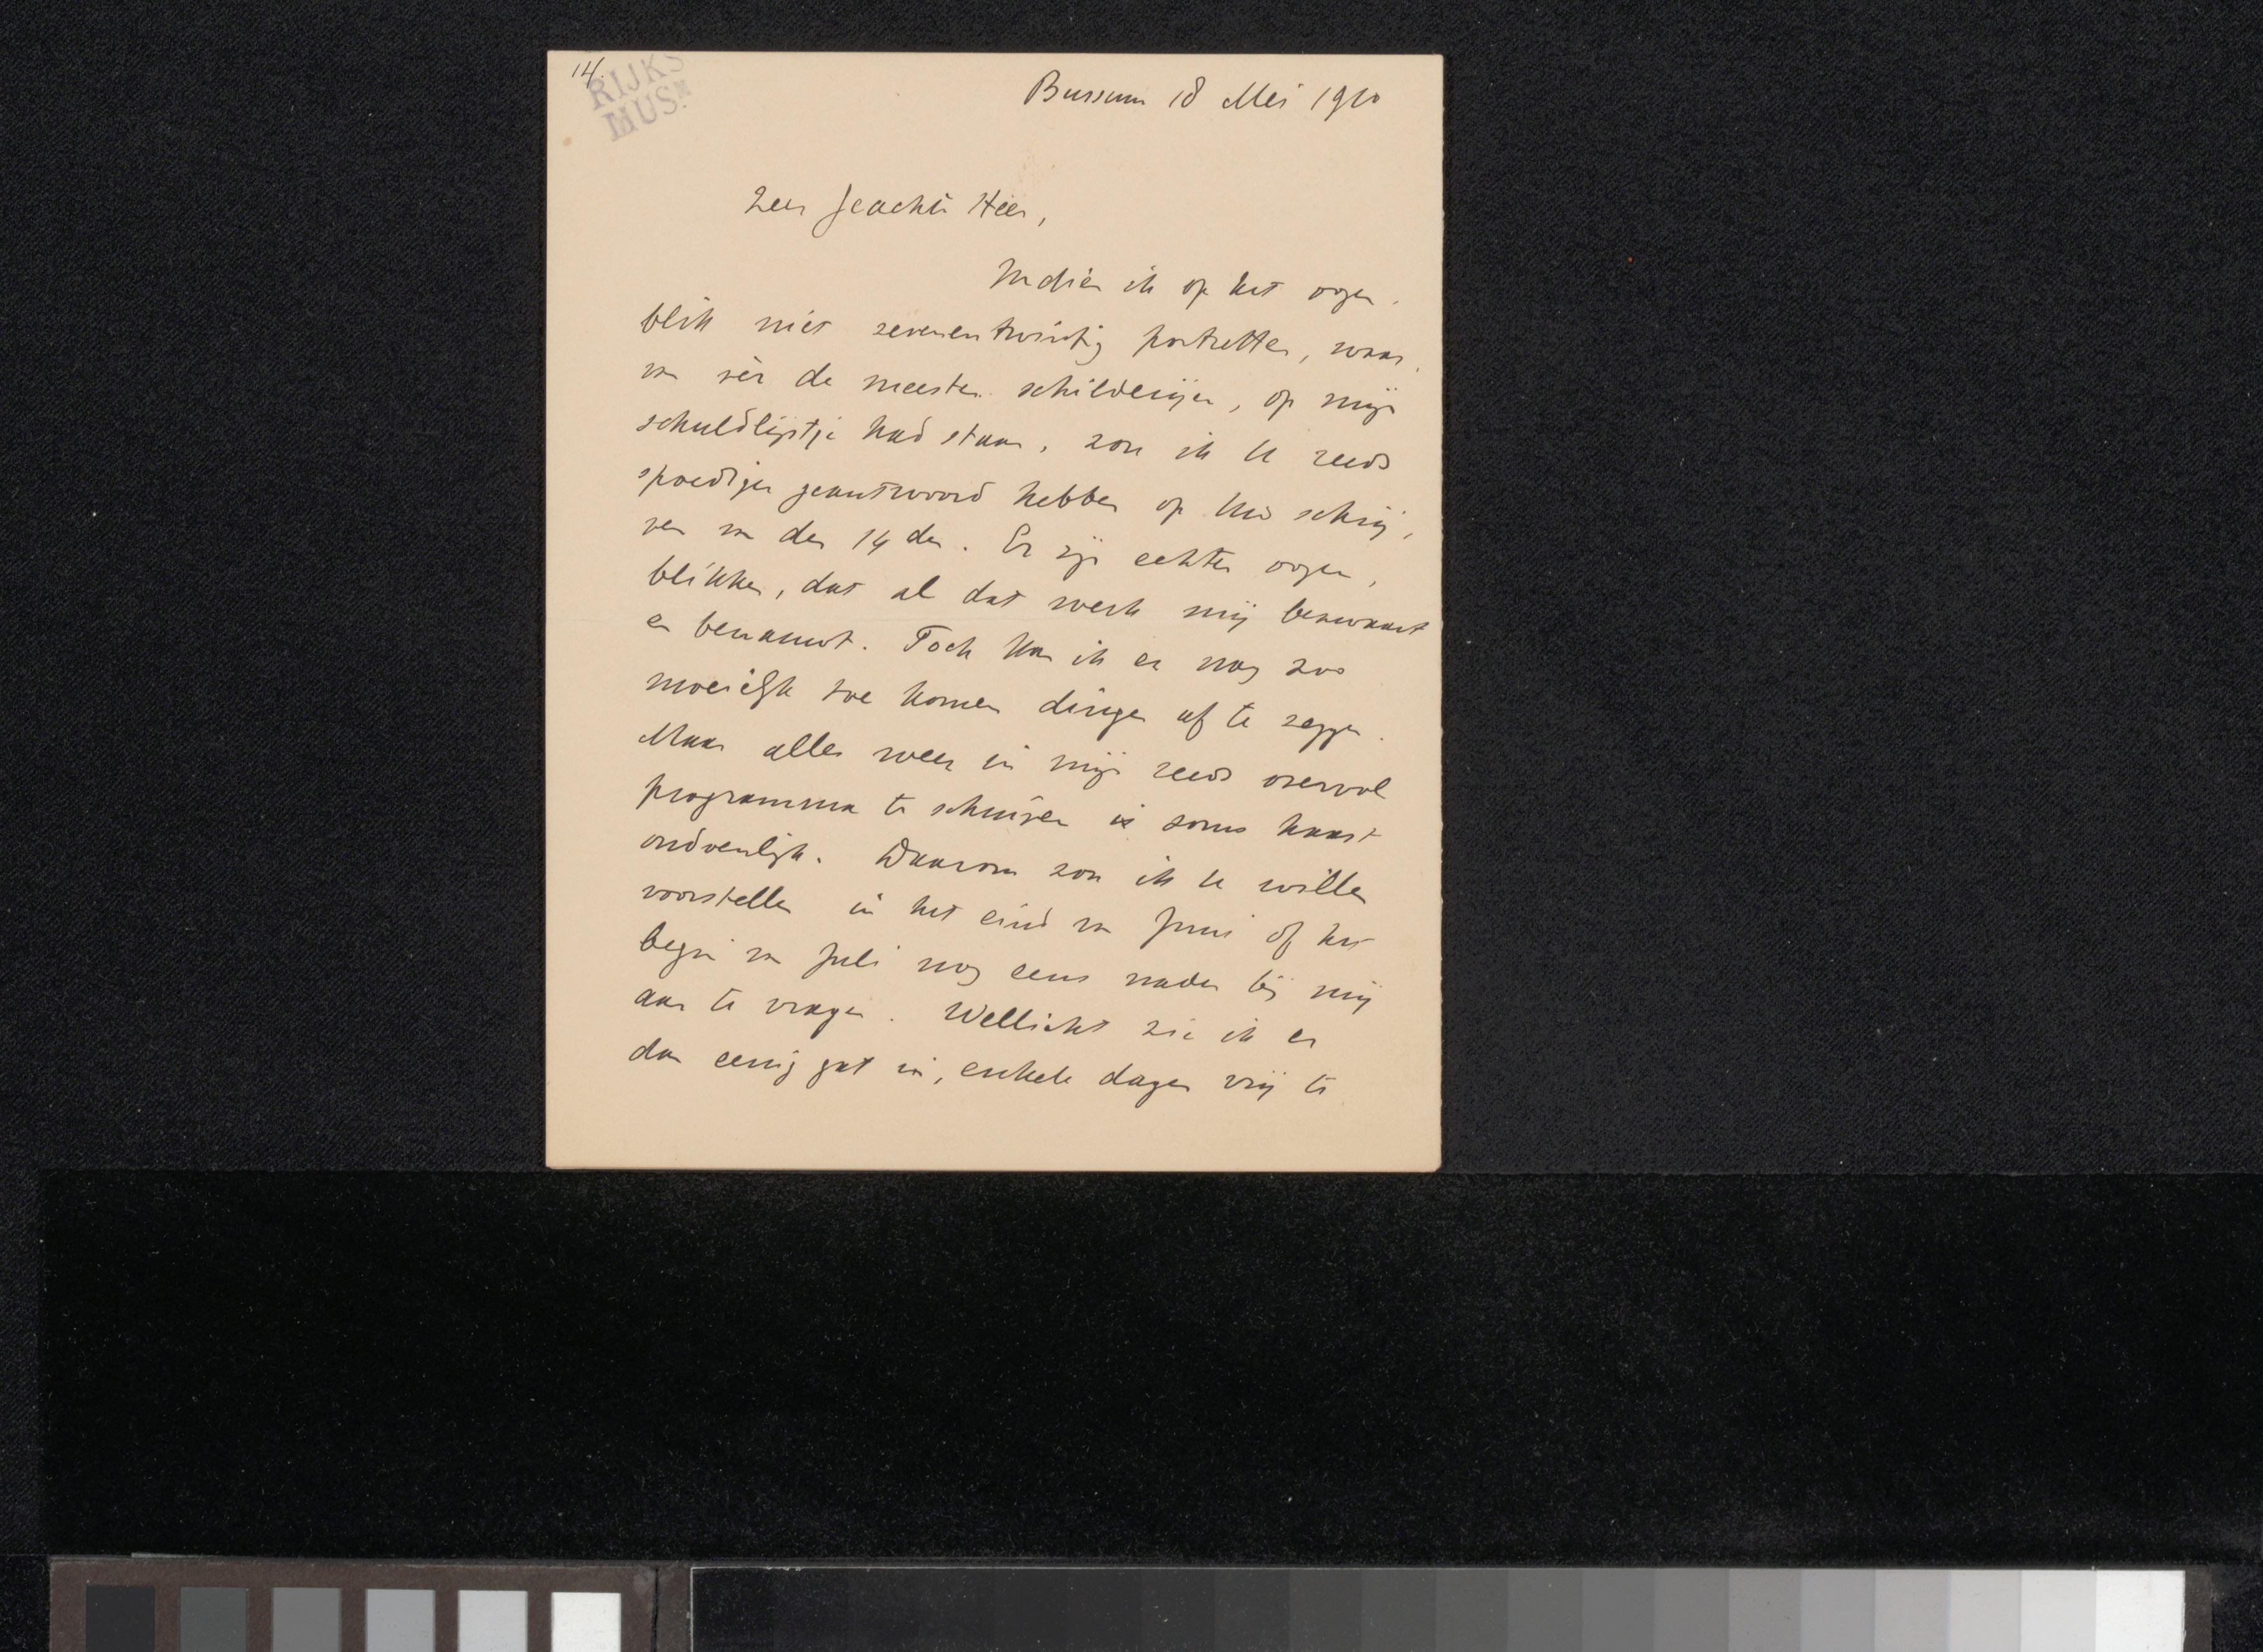 14.
RIJKS
MUSM
Bussum 18 Mei 1910
Zeer geachte Heer,
Indien ik op het oogen-
blik niet zevenentwintig portretten, waar-
van vèr de meeste schilderijen, op mijn
schuldlijstje had staan, zou ik U reeds
spoediger geantwoord hebben op Uw schrij-
ven van den 14den. Er zijn echter oogen-
blikken, dat al dat werk mij bezwaart
en benauwt. Toch kan ik er nog zoo
moeielijk toe komen dingen af te zeggen.
Maar alles weer in mijn reeds overvol
programma te schuiven is soms haast
ondoenlijk. Daarom zou ik U willen
voorstellen in het eind van Juni of het
begin van Juli nog eens nader bij mij
aan te vragen. Wellicht zie ik er
dan eenig gat in, enkele dagen vrij te